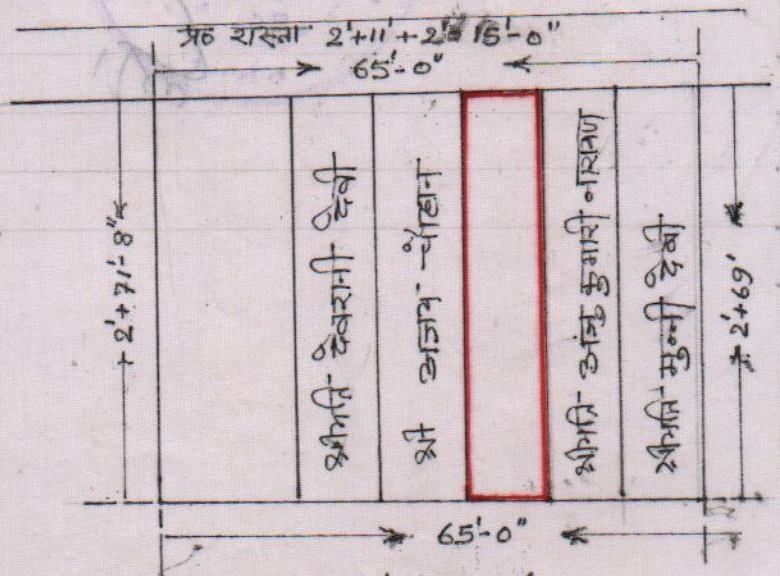 प्र० रास्ता 2'+11'+2'= 15'-0"
65'-0"
2'+71'-8"
श्रीमति देवरानी देवी
श्री अजय चौहान
श्रीमति अंजु कुमारी नारायण
श्रीमति मुन्नी देवी
2'+69'
65'-0"